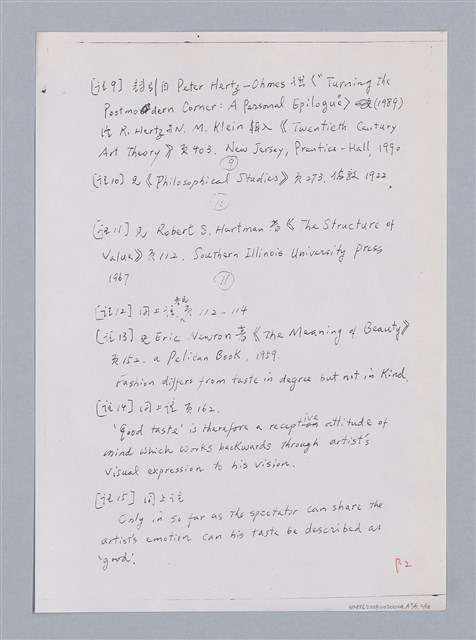 [註9] 轉引自 Peter Hertz-Ohmes 撰《"Turning the
Postmodern Corner: A Personal Epilogue》(1989)
R. Hertz和N. M. Klein 輯入《Twentieth Century
Art Theory》頁403. New Jersey, Prentice-Hall, 1990
⑨
[註10] 見《Philosophical Studies》頁273. 倫敦 1922.
⑩
[註11] 見 Robert S. Hartman 著《The Structure of
Value》頁112. Southern Illinois University press
1967
⑪
[註12] 同上註, 頁 112-114
[註13] 見 Eric Newton 著《The Meaning of Beauty》
頁152. a Pelican Book, 1959.
Fashion differs from taste in degree but not in Kind.
[註14] 同上註 頁162.
'good taste' is therefore a receptive attitude of
mind which works backwards through artist's
visual expression to his vision.
[註15] 同上註
Only in so far as the spectator can share the
artist's emotion can his taste be described as
'good'.